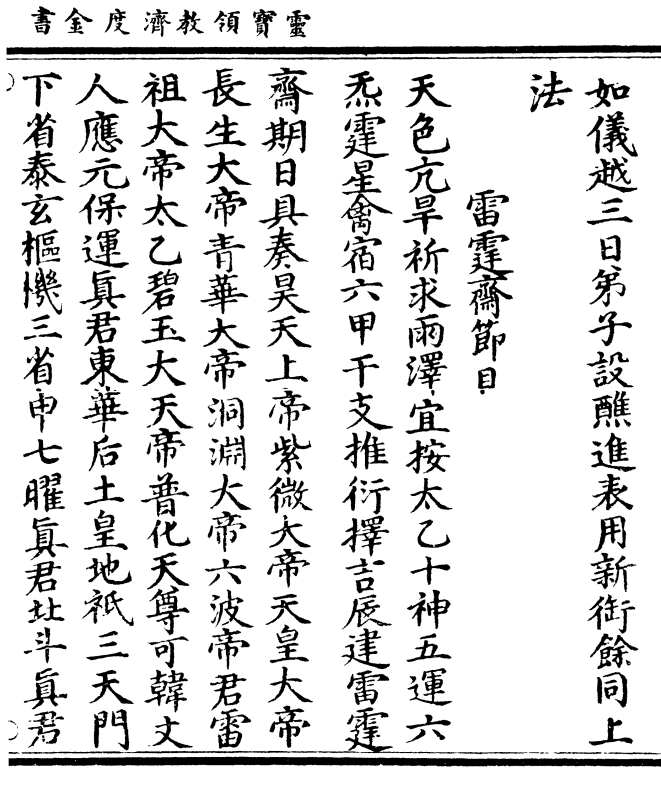 靈寶領教濟度金書
如儀越三日弟子設醮進表用新銜餘同上
法
雷霆齋節目
天色亢旱祈求雨澤宜按太乙十神五運六
炁霆星禽宿六甲干支推衍擇吉辰建雷霆
齋期日具奏昊天上帝紫微大帝天皇大帝
長生大帝青華大帝洞淵大帝六波帝君雷
祖大帝太乙碧玉大天帝普化天尊可韓丈
人應元保運眞君東華后土皇地祇三天門
下省泰玄樞機三省申七曜眞君北斗眞君